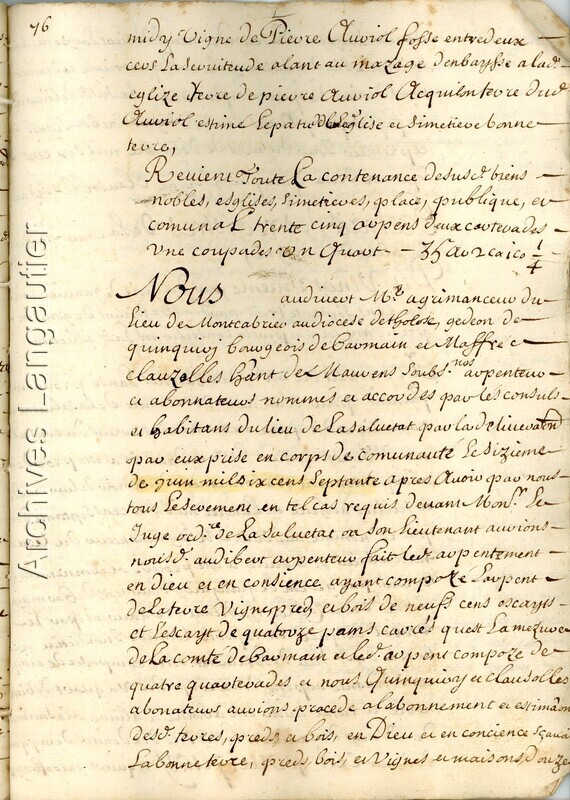 76
midy Vigne de Pierre Auriol fosse entredeux
cers La servitude alant au mazage denbaysse a lad.
eglize terre de pierre Auriol Acquilon terre dud.
Auriol estimé Le patu de Leglise et Simetiere bonne
terre,
Revient Toute La contenance desusd. biens
nobles, esglises, Simetieres, place, publique, et
comunal trente cinq arpens deux carterades
Une coupades Un Quart — 35 ar 2 ca 1 co 1/4
Nous audibert Mre agrimanceur du
Lieu de Montcabrier au diocese de tholose, gedeon de
quinquiry bourgeois de Carmain et Maffre
clauzolles habant de Mauvens Soubs.nos arpenteur
et abonnateurs nommés et accordes par les consuls
et habitans du lieu de La Saluetat par la deliveraon
par eux prise en corps de comunauté Le Sizieme
de juin mil six cens Septante apres Avoir par nous
tous Leserement en tel cas requis devant Monsr. Le
Juge ordre. de La Saluetat ou son Lieutenant avrions
nousd. audibert arpenteur fait Led. arpentement
en Dieu et en consience ayant compozé Larpent
de La terre Vigne pred et bois de neuf cens escayts
et Lescayt de quatorze pams carrés quest La mezure
de La comté de Carmain et led. arpent compoze de
quatre quarterades et nous Quinquiry et clausolles
abonateurs avrions procede a labonnement et estimaon
desd. terres, preds et bois, en Dieu et en concience sçavoir
La bonne terre, preds, bois, et Vignes et maisons, douze
Archives Langautier